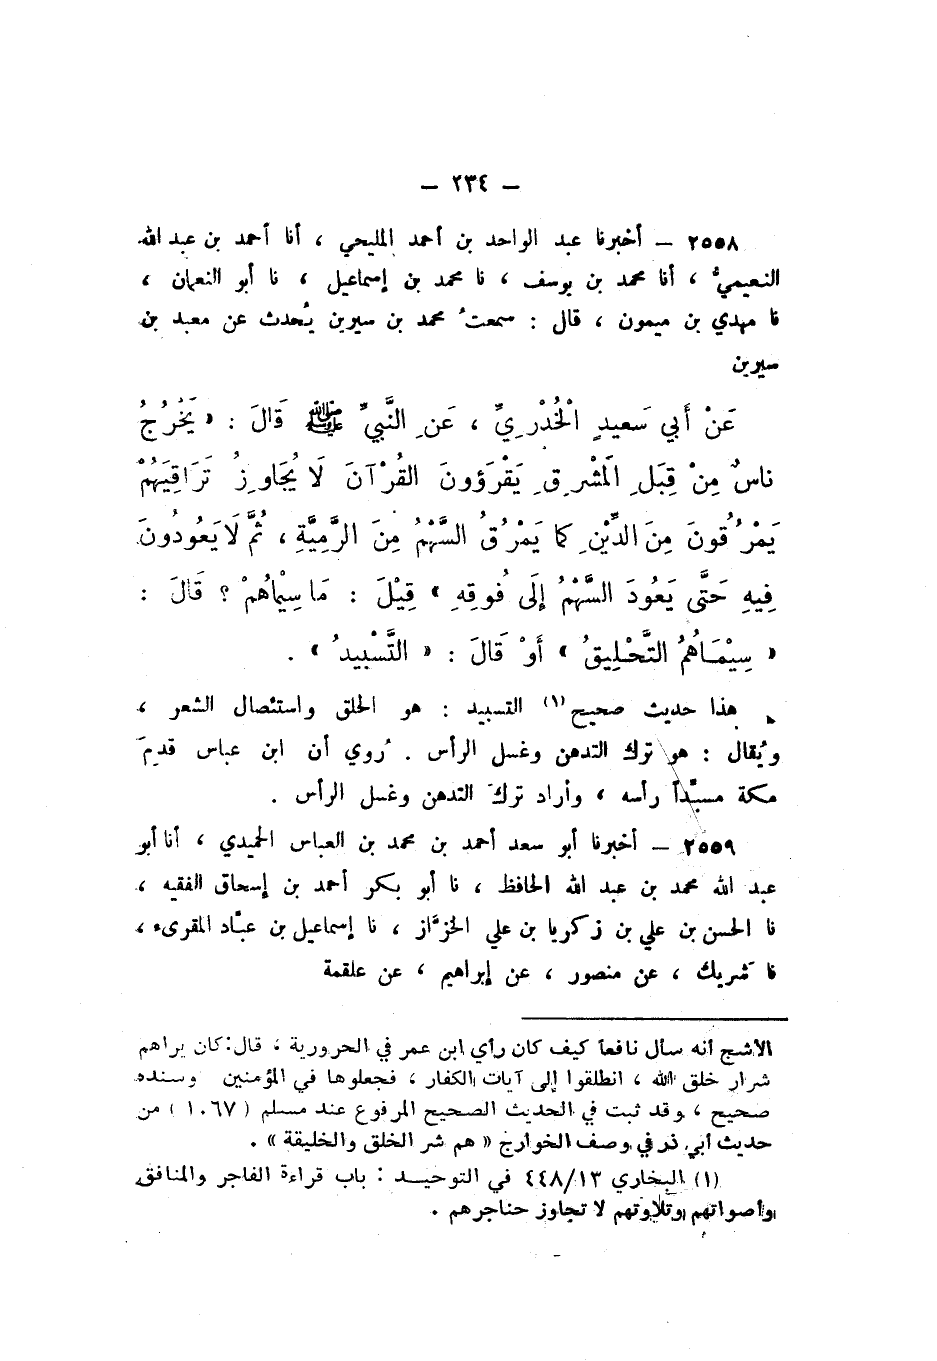 — ٢٣٤ —
٢٥٥٨ — أخبرنا عبد الواحد بن أحمد المليحي ، أنا أحمد بن عبد الله
النعيميُّ ، أنا محمد بن يوسف ، نا محمد بن إسماعيل ، نا أبو النعمان ،
نا مهدي بن ميمون ، قال : سمعتُ محمد بن سيرين يُحدث عن معبد بن
سيرين
عَنْ أَبي سَعيدٍ الْخُدْرِيِّ ، عَنِ النَّبيِّ ﷺ قَالَ : « يَخْرُجُ
ناسٌ مِنْ قِبَلِ المَشْرِقِ يَقْرَؤونَ القُرْآنَ لَا يُجَاوِزُ تَرَاقِيَهُمْ
يَمْرُقونَ مِنَ الدِّيْنِ كما يَمْرُقُ السَّهْمُ مِنَ الرَّمِيَّةِ ، ثُمَّ لَا يَعُودُونَ
فِيهِ حَتَّى يَعُودَ السَّهْمُ إلَى فُوقِهِ » قِيْلَ : مَا سِيْماهُمْ ؟ قَالَ :
« سِيْمَاهُمُ التَّحْلِيقُ » أَوْ قَالَ : « التَّسْبِيدُ » .
هذا حديث صحيح (١) التسبيد : هو الحلق واستئصال الشعر ،
ويُقال : هو ترك التدهن وغسل الرأس . رُوي أن ابن عباس قدِمَ
مكة مسبِّداً رأسه ، وأراد تركَ التدهن وغسل الرأس .
٢٥٥٩ — أخبرنا أبو سعد أحمد بن محمد بن العباس الحميدي ، أنا أبو
عبد الله محمد بن عبد الله الحافظ ، نا أبو بكر أحمد بن إسحاق الفقيه ،
نا الحسن بن علي بن زكريا بن علي الخزَّاز ، نا إسماعيل بن عبَّاد المقرىء ،
نا شريك ، عن منصور ، عن إبراهيم ، عن علقمة
الأشج أنه سأل نافعاً كيف كان رأي ابن عمر في الحرورية ، قال : كان يراهم
شرار خلق الله ، انطلقوا إلى آيات الكفار ، فجعلوها في المؤمنين وسنده
صحيح ، وقد ثبت في الحديث الصحيح المرفوع عند مسلم ( ١٠٦٧ ) من
حديث أبي ذر في وصف الخوارج « هم شر الخلق والخليقة » .
(١) البخاري ٤٤٨/١٣ في التوحيد : باب قراءة الفاجر والمنافق
وأصواتهم وتلاوتهم لا تجاوز حناجرهم .